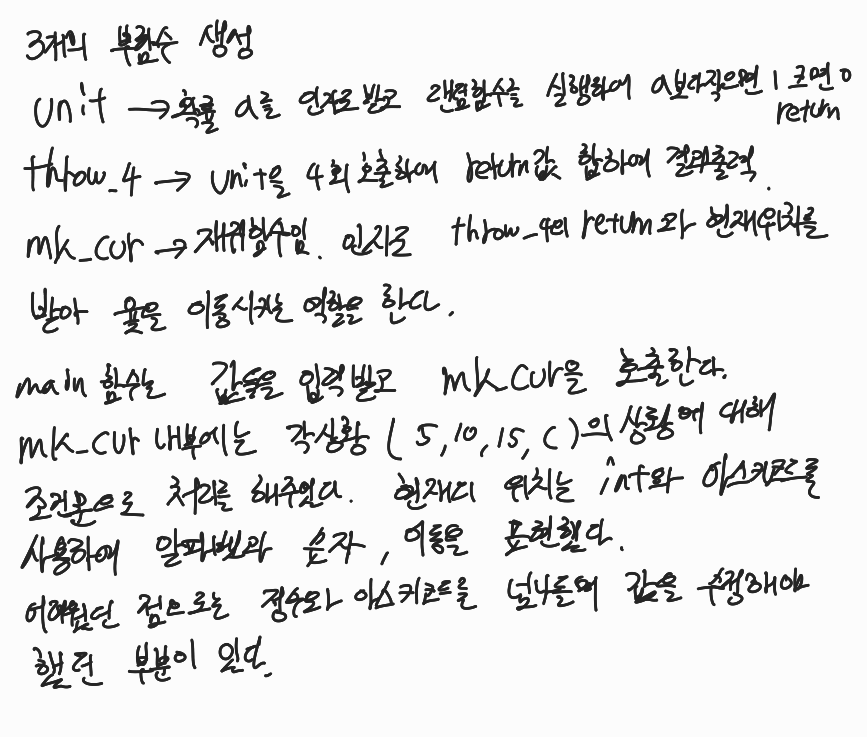 3개의 부함수 생성
unit → 확률 a를 인자로 받고 랜덤함수를 실행하여 a보다작으면 1 크면 0
return
throw_4 → unit을 4회 호출하여 return값 합하여 결과출력.
mk_cur → 재귀함수임. 인자로 throw_4의 return와 현재위치를
받아 윷을 이동시키는 역할을 한다.
main 함수는 값들을 입력받고 mk_cur을 호출한다.
mk_cur 내부에는 각상황 ( 5, 10, 15, C )의 상황에 대해
조건문으로 처리를 해주었다. 현재의 위치는 int와 아스키코드를
사용하여 알파벳과 숫자, 이동을 표현했다.
어려웠던 점으로는 정수와 아스키코드를 넘나들며 값을 수정해야
했던 부분이 있다.